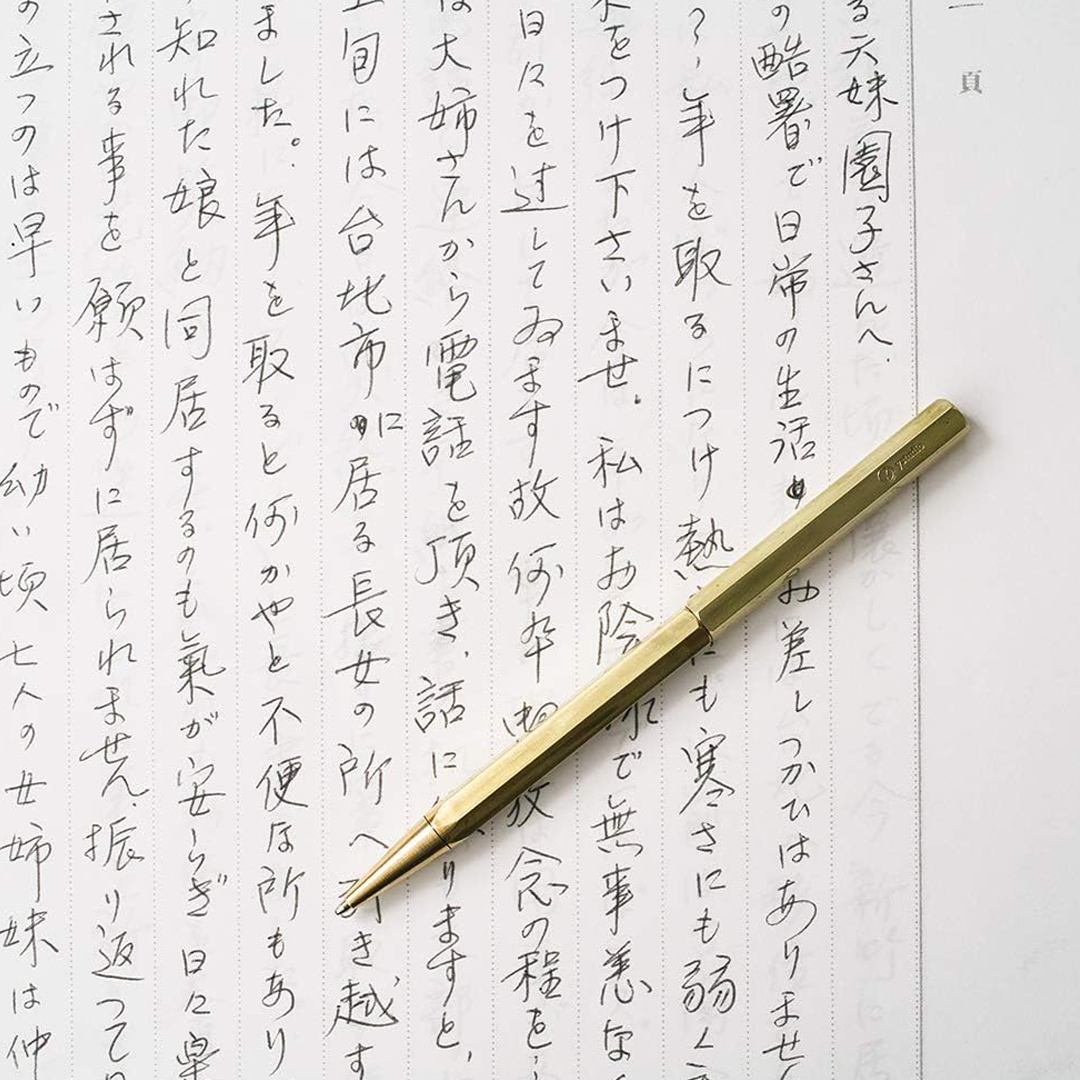 一頁
る六妹園子さんへ.
の酷暑で日常の生活 お差しつかひはありませ
年を取るにつけ熱 にも寒さにも弱く
をつけ下さいませ。私はお陰 で無事恙な
日々を过してゐます故何卒 放念の程を
大姉さんから電話を頂き、話に りますと、
旬には台北市に居る長女の所へ引き越す
ました。年を取ると何かやと不便な所もあり
知れた娘と同居するのも氣が安らぎ日に
される事を願はずに居られません、振り返って
の立つのは早いもので幼い頃七人の女姉妹は仲
ystudio